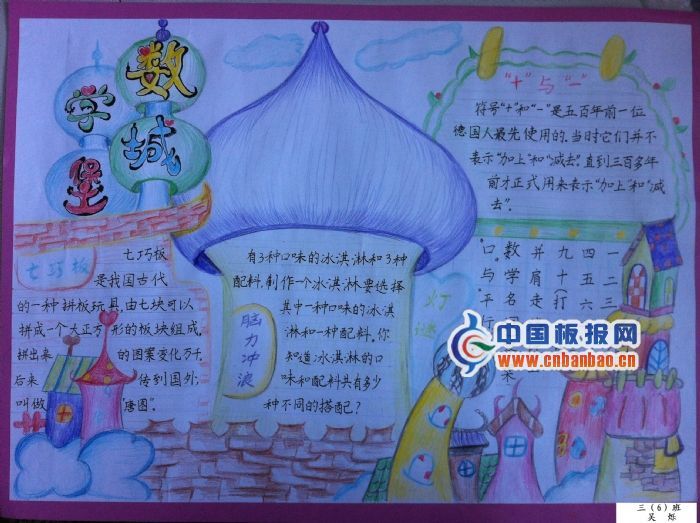 数学城堡
"+"与"-"
符号"+"和"-"是五百年前一位
德国人最先使用的。当时它们并不
表示"加上"和"减去"。直到三百多年
前才正式用来表示"加上"和"减
去"。
七巧板
七巧板
是我国古代
的一种拼板玩具,由七块可以
拼成一个大正方形的板块组成,
拼出来的图案变化万千,
后来传到国外,
叫做"唐图"。
脑力冲浪
有3种口味的冰淇淋和3种
配料,制作一个冰淇淋要选择
其中一种口味的冰淇
淋和一种配料。你
知道冰淇淋的口
味和配料共有多少
种不同的搭配?
灯谜
一二三
四五六
九十(打
并肩走
数学名
口与平行
中国板报网
www.cnbanbao.cn
三(6)班
吴烁